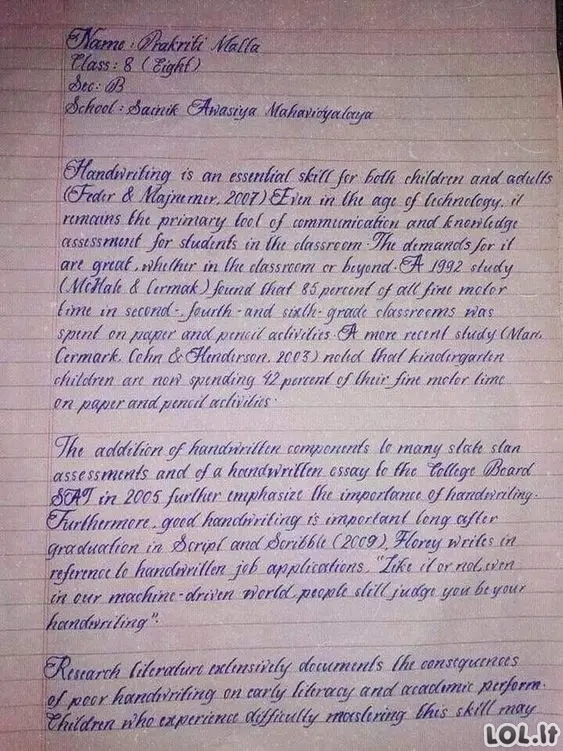 Name: Prakriti Malla
Class: 8 (Eight)
Sec: B
School: Sainik Awasiya Mahavidyalaya
Handwriting is an essential skill for both children and adults
(Feder & Majnemer, 2007) Even in the age of technology, it
remains the primary tool of communication and knowledge
assessment for students in the classroom. The demands for it
are great, whether in the classroom or beyond. A 1992 study
(McHale & Cermak) found that 85 percent of all fine motor
time in second-, fourth- and sixth-grade classrooms was
spent on paper and pencil activities. A more recent study (Marr,
Cermark, Cohn & Henderson, 2003) noted that kindergarten
children are now spending 42 percent of their fine motor time
on paper and pencil activities.
The addition of handwritten components to many state stan
assessments and of a handwritten essay to the College Board
SAT in 2005 further emphasize the importance of handwriting.
Furthermore, good handwriting is important long after
graduation in Script and Scribble (2009), Florey writes in
reference to handwritten job applications, "Like it or not, even
in our machine-driven world, people still judge you be your
handwriting".
Research literature extensively documents the consequences
of poor handwriting on early literacy and academic perform-
Children who experience difficulty mastering this skill may
LOL.lt